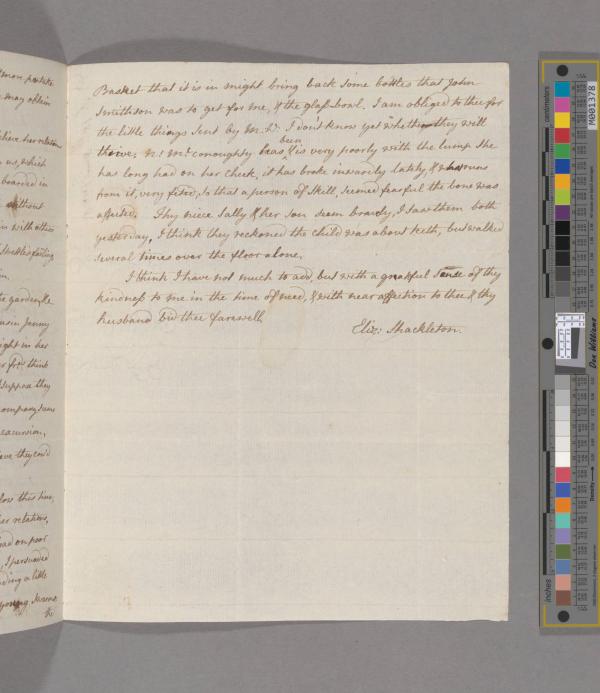 more, potatoe
may obtain
believe her relation
us, which
boarded in
without
is with others
in.
e garden, he
cousin Jenny
ight in her
think
suppose they
company seems
excursion,
ieve they could
loss this time,
her relations,
had on poor
, I persuaded
ding a little
young
Basket that it is in might bring back some bottles that John
Smithson was to get for me, & the glass-bowl. I am obliged to thee for
the little things sent by M:D: I don't know yet whether they will
thrive, M: Mc: conoughty has been & is very poorly with the lump she
has long had on her cheek, it has broke inwardly lately, & runs
from it, very fetid, so that a person of skill, seemed fearful the bone was
affected. Thy niece Sally & her son seem bravely, I saw them both
yesterday, I think they reckoned the child was about teeth, but walked
several times over the floor alone.
I think I have not much to add, but with a grateful sense of thy
kindness to me in the time of need, & with near affection to thee & thy
husband bid thee farewell
Eliz: Shackleton.
centimeters
M001378
Don Williams
Density
inches